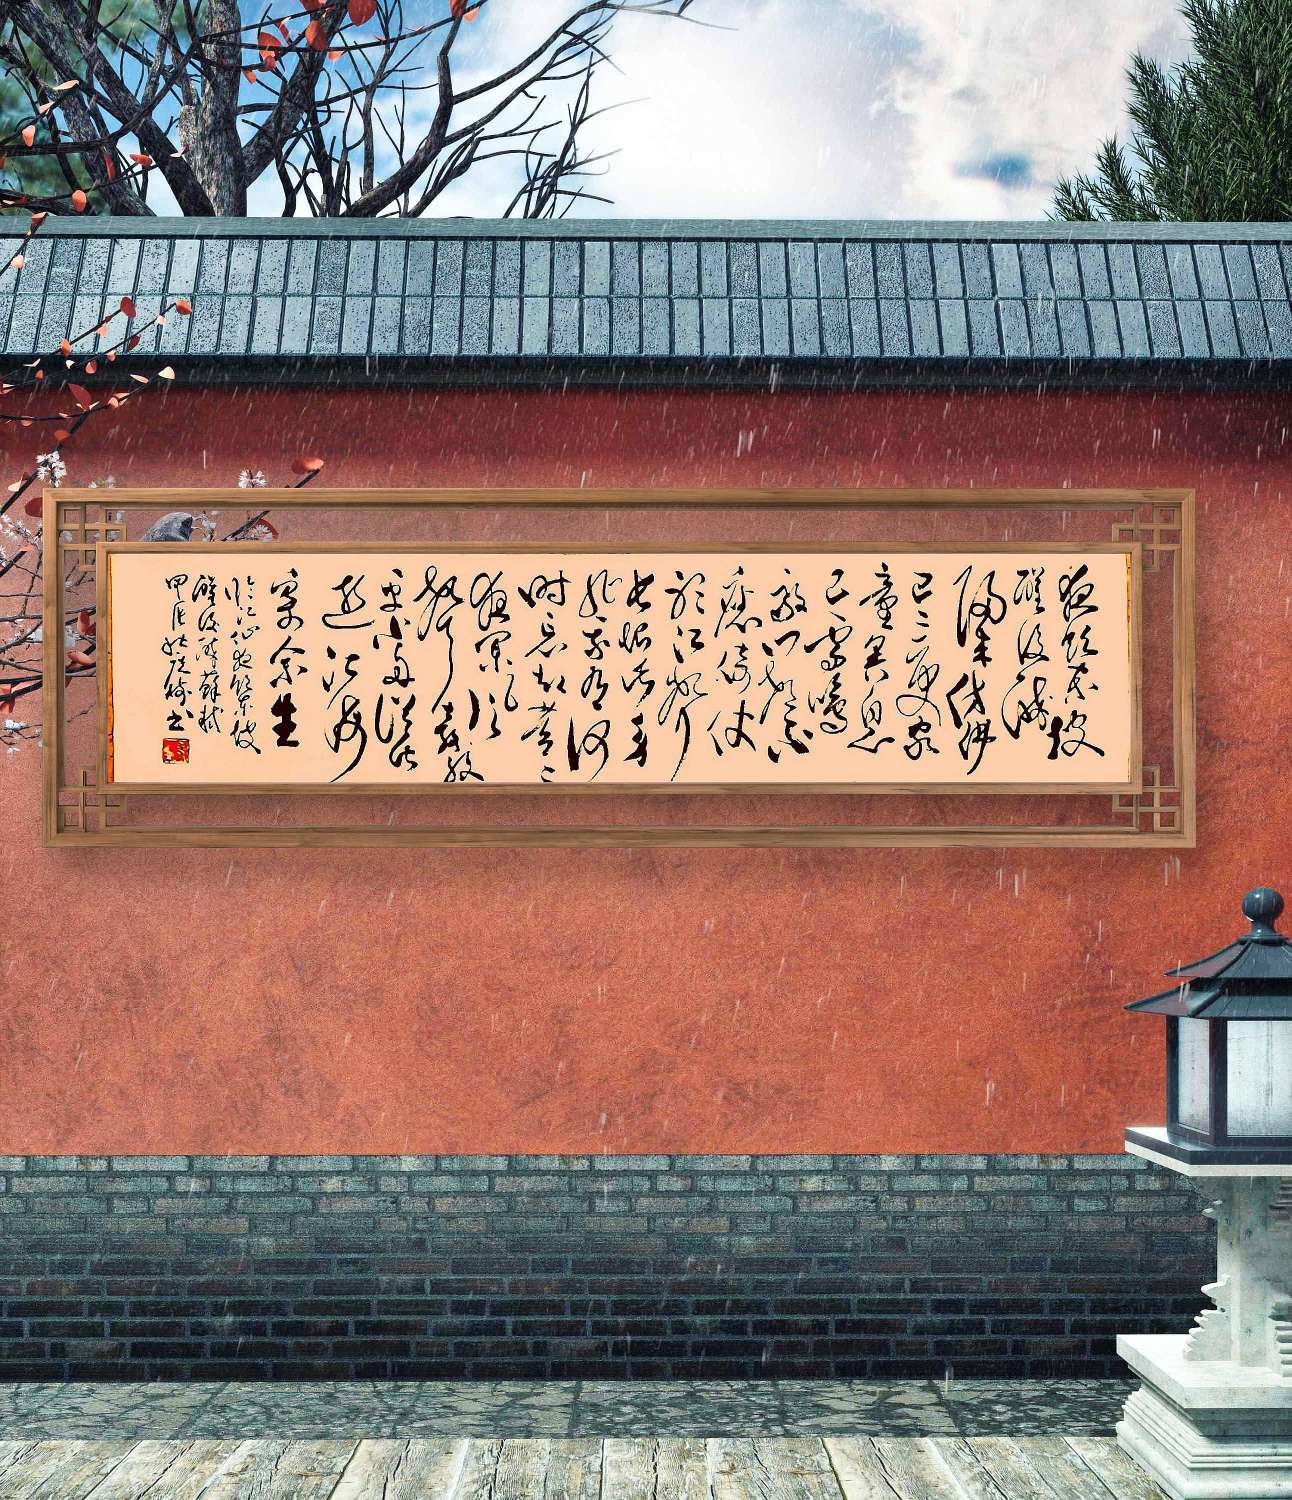 夜饮东坡
醒复醉
归来仿佛
三更家
童鼻息
已雷鸣
敲门都不
应倚仗
听江声
长恨此身
非我有何
时忘却营々
夜阑风
静縠纹
平小舟从此
逝江海
寄余生
临江仙夜饮东坡
醒复醉苏轼
甲辰 书